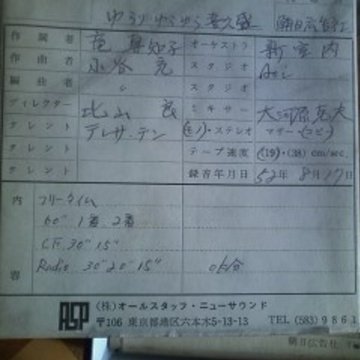 作詞者 竜真知子 オーケストラ 新室内
作曲者 小谷充 スタジオ
編曲者 〃 スタジオ
ディレクター 比山 良 ミキサー 大河原克夫
タレント テレサ・テン (モノ)・ステレオ マザー・(コピー)
タレント テープ速度 (19)・(38) cm/sec.
タレント 録音年月日 52年 8月17日
内容
フリータイム
60" 1番、2番
CF. 30" 15"
Radio 30" 20" 15"
ASP (株)オールスタッフ・ニューサウンド
〒106 東京都港区六本木5-13-13 TEL (583) 9861